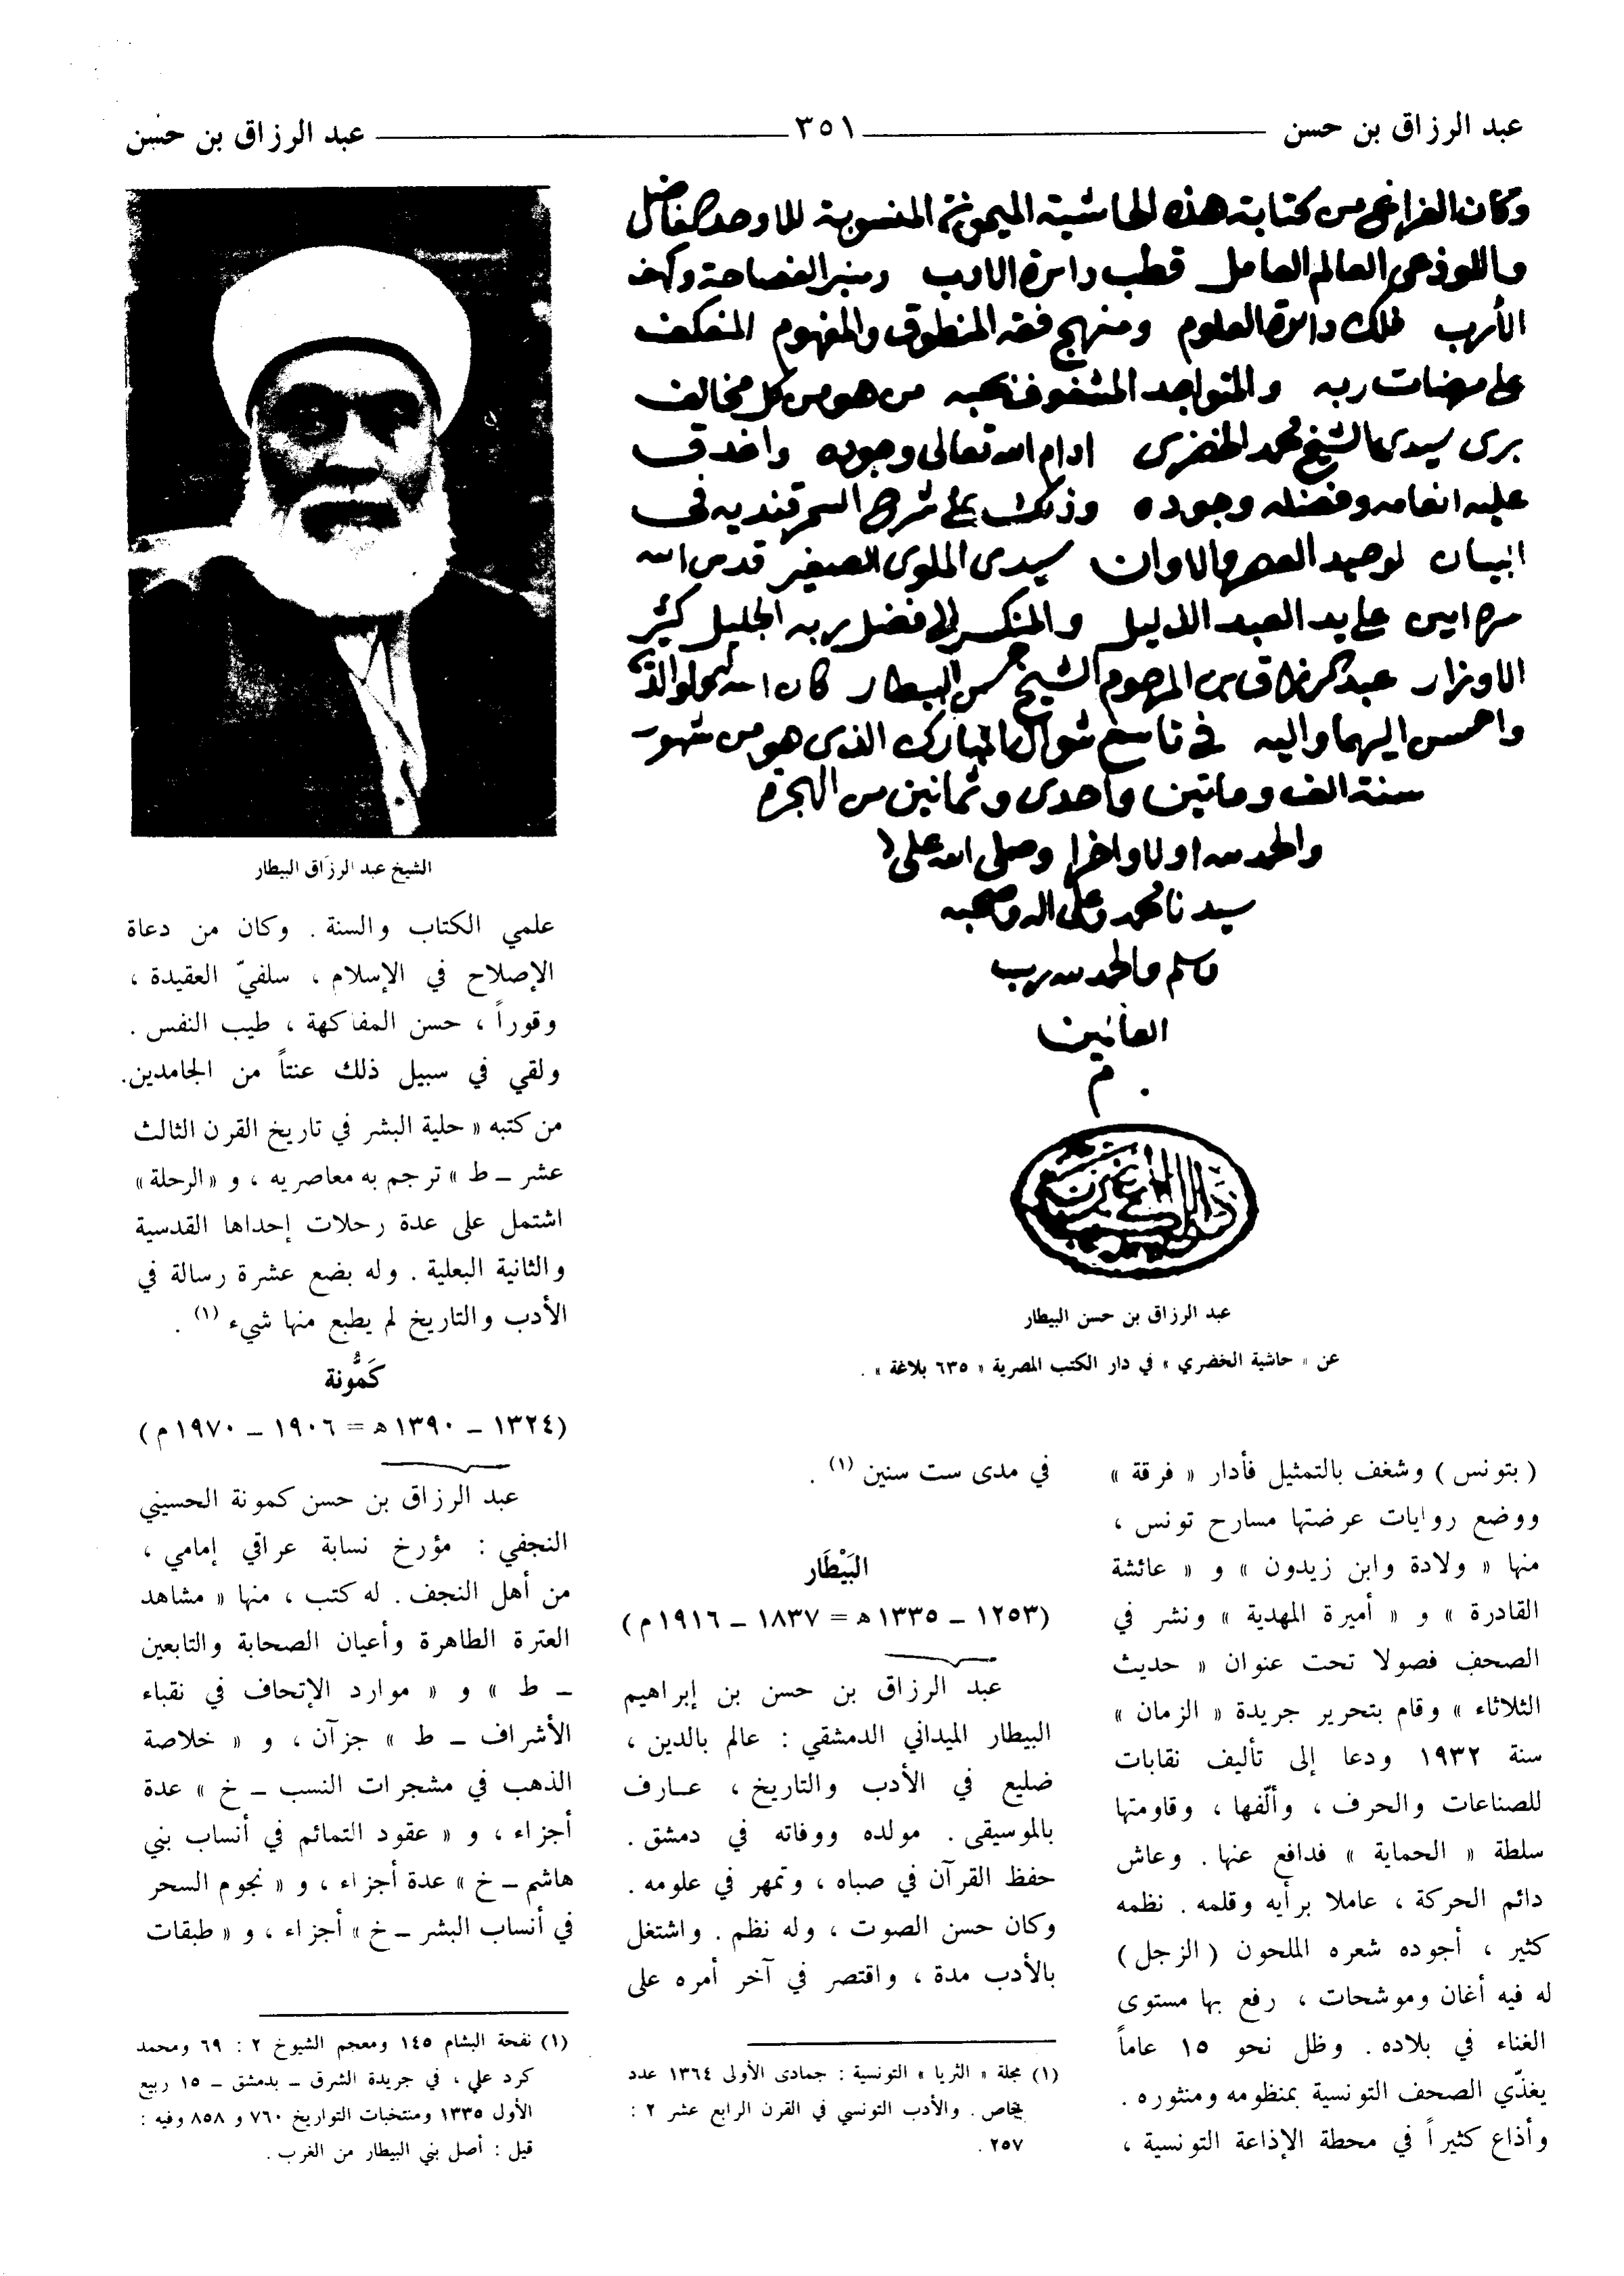 عبد الرزاق بن حسن
٣٥١
عبد الرزاق بن حسن
وكان الفراغ من كتابة هذه الحاشية الميمونة المنسوبة للاوحد الفاضل
واللوذعي العالم العامل قطب دائرة الادب ومنبر الفصاحة وكهف
الأرب فلك دائرة العلوم ومنهج فقه المنطوق والمفهوم المنعكف
على مرضات ربه والمتواجد المشغوف بحبه من هو من كل مخالف
بري سيدى الشيخ محمد الخضرى ادام الله تعالى وجوده واغدق
عليه انعامه وفضله وجوده وذلك على شرح السمرقنديه فى
البيان لوحيد العصر والاوان سيدى الملوى الصغير قدس الله
سره امين على يد العبد الذليل والمنكسر الى فضل ربه الجليل كثير
الاوزار عبد الرزاق ابن المرحوم الشيخ حسن البيطار كان الله له ولوالديه
واحسن اليهما واليه في تاسع شوال المبارك الذى هو من شهور
سنة الف وماتين واحدى وثمانين من الهجرة
والحمد لله اولا واخرا وصلى الله على
سيدنا محمد وعلى اله وصحبه
وسلم والحمد لله رب
العالمين
م
عبد الرزاق بن حسن البيطار
عن « حاشية الخضري » في دار الكتب المصرية « ٦٣٥ بلاغة » .
( بتونس ) وشغف بالتمثيل فأدار « فرقة »
ووضع روايات عرضتها مسارح تونس ،
منها « ولادة وابن زيدون » و « عائشة
القادرة » و « أميرة المهدية » ونشر في
الصحف فصولا تحت عنوان « حديث
الثلاثاء » وقام بتحرير جريدة « الزمان »
سنة ١٩٣٢ ودعا إلى تأليف نقابات
للصناعات والحرف ، وألّفها ، وقاومتها
سلطة « الحماية » فدافع عنها . وعاش
دائم الحركة ، عاملا برأيه وقلمه . نظمه
كثير ، أجوده شعره الملحون ( الزجل )
له فيه أغان وموشحات ، رفع بها مستوى
الغناء في بلاده . وظل نحو ١٥ عاماً
يغذّي الصحف التونسية بمنظومه ومنثوره .
وأذاع كثيراً في محطة الإذاعة التونسية ،
في مدى ست سنين (١) .
البَيْطَار
(١٢٥٣ – ١٣٣٥ ه = ١٨٣٧ – ١٩١٦ م)
عبد الرزاق بن حسن بن إبراهيم
البيطار الميداني الدمشقي : عالم بالدين ،
ضليع في الأدب والتاريخ ، عارف
بالموسيقى . مولده ووفاته في دمشق .
حفظ القرآن في صباه ، وتمهر في علومه .
وكان حسن الصوت ، وله نظم . واشتغل
بالأدب مدة ، واقتصر في آخر أمره على
(١) مجلة « الثريا » التونسية : جمادى الأولى ١٣٦٤ عدد
خاص . والأدب التونسي في القرن الرابع عشر ٢ :
٢٥٧ .
الشيخ عبد الرزَاق البيطار
علمي الكتاب والسنة . وكان من دعاة
الإصلاح في الإسلام ، سلفيّ العقيدة ،
وقوراً ، حسن المفاكهة ، طيب النفس .
ولقي في سبيل ذلك عنتاً من الجامدين.
من كتبه « حلية البشر في تاريخ القرن الثالث
عشر – ط » ترجم به معاصريه ، و « الرحلة »
اشتمل على عدة رحلات إحداها القدسية
والثانية البعلية . وله بضع عشرة رسالة في
الأدب والتاريخ لم يطبع منها شيء (١) .
كَمُّونة
(١٣٢٤ – ١٣٩٠ ه = ١٩٠٦ – ١٩٧٠ م)
عبد الرزاق بن حسن كمونة الحسيني
النجفي : مؤرخ نسابة عراقي إمامي ،
من أهل النجف . له كتب ، منها « مشاهد
العترة الطاهرة وأعيان الصحابة والتابعين
– ط » و « موارد الإتحاف في نقباء
الأشراف – ط » جزآن ، و « خلاصة
الذهب في مشجرات النسب – خ » عدة
أجزاء ، و « عقود التمائم في أنساب بني
هاشم – خ » عدة أجزاء ، و « نجوم السحر
في أنساب البشر – خ » أجزاء ، و « طبقات
(١) نفحة البشام ١٤٥ ومعجم الشيوخ ٢ : ٦٩ ومحمد
كرد علي ، في جريدة الشرق – بدمشق – ١٥ ربيع
الأول ١٣٣٥ ومنتخبات التواريخ ٧٦٠ و ٨٥٨ وفيه :
قيل : أصل بني البيطار من الغرب .